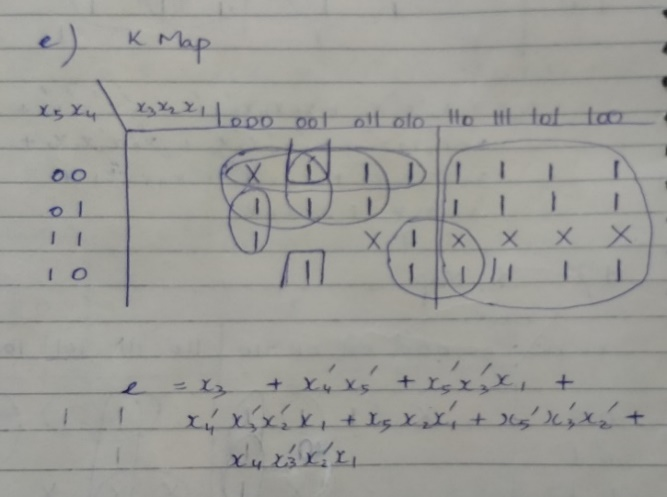 e) K Map
x₅x₄ x₃x₂x₁ 000 001 011 010 110 111 101 100
00 X 1 1 1 1 1 1 1
01 1 1 1 1 1 1 1
11 1 X 1 X X X X
10 1 1 1 1 1 1
e = x₃ + x₄'x₅' + x₅'x₃'x₁ +
1 1 x₄'x₃'x₂'x₁ + x₅x₂x₁' + x₅'x₃'x₂' +
1 x₄x₃'x₂'x₁